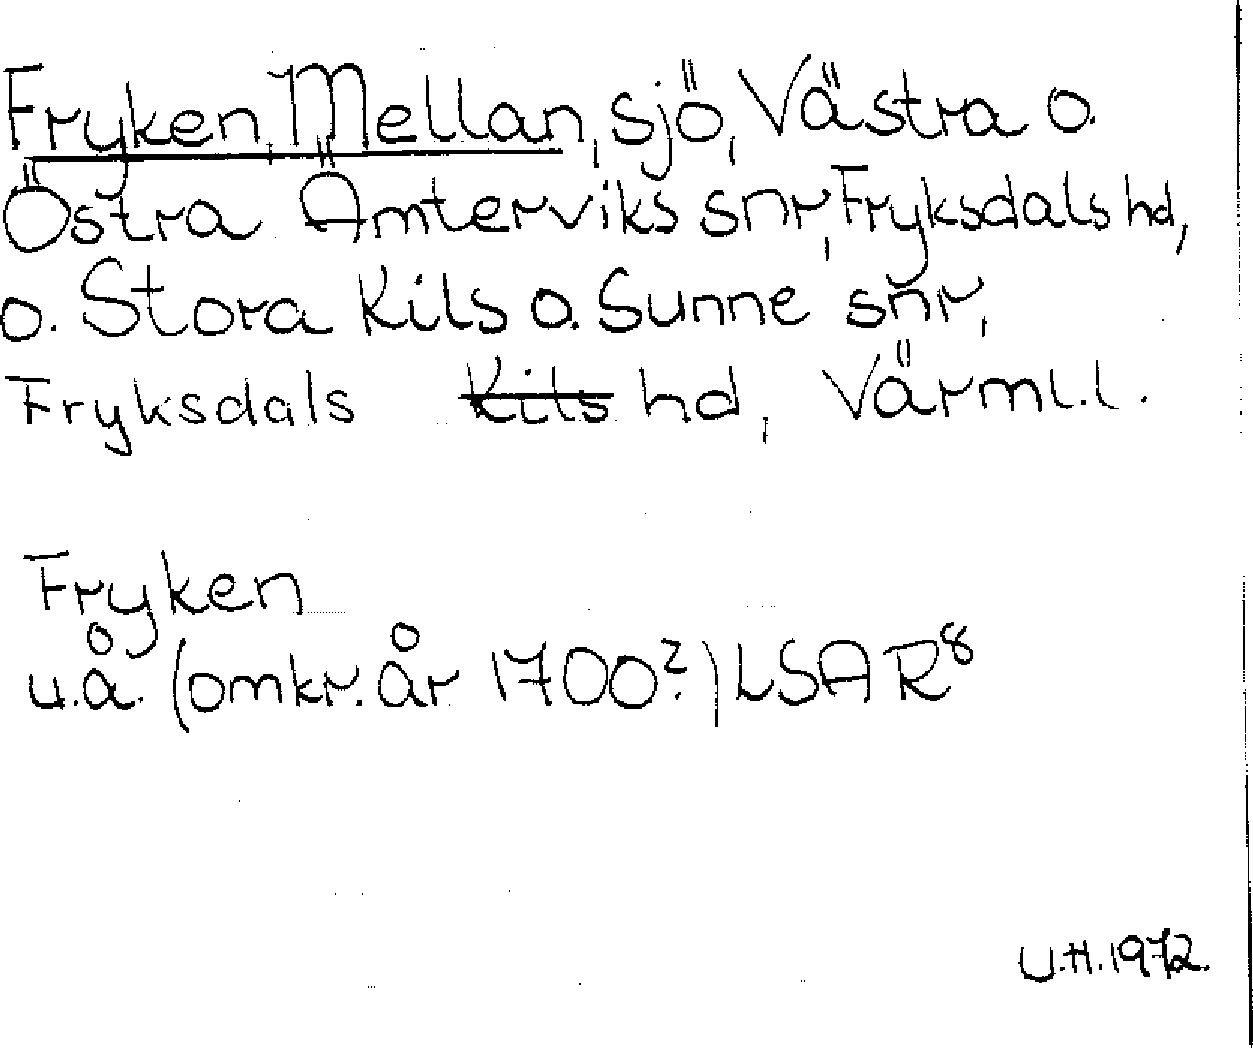 Fryken, Mellan, sjö, Västra o.
Östra Ämterviks snr, Fryksdals hd,
o. Stora Kils o. Sunne snr,
Fryksdals Kils hd, Värml.l.
Fryken
u.å. (omkr. år 1700?) LSA R8
U.H. 1972.